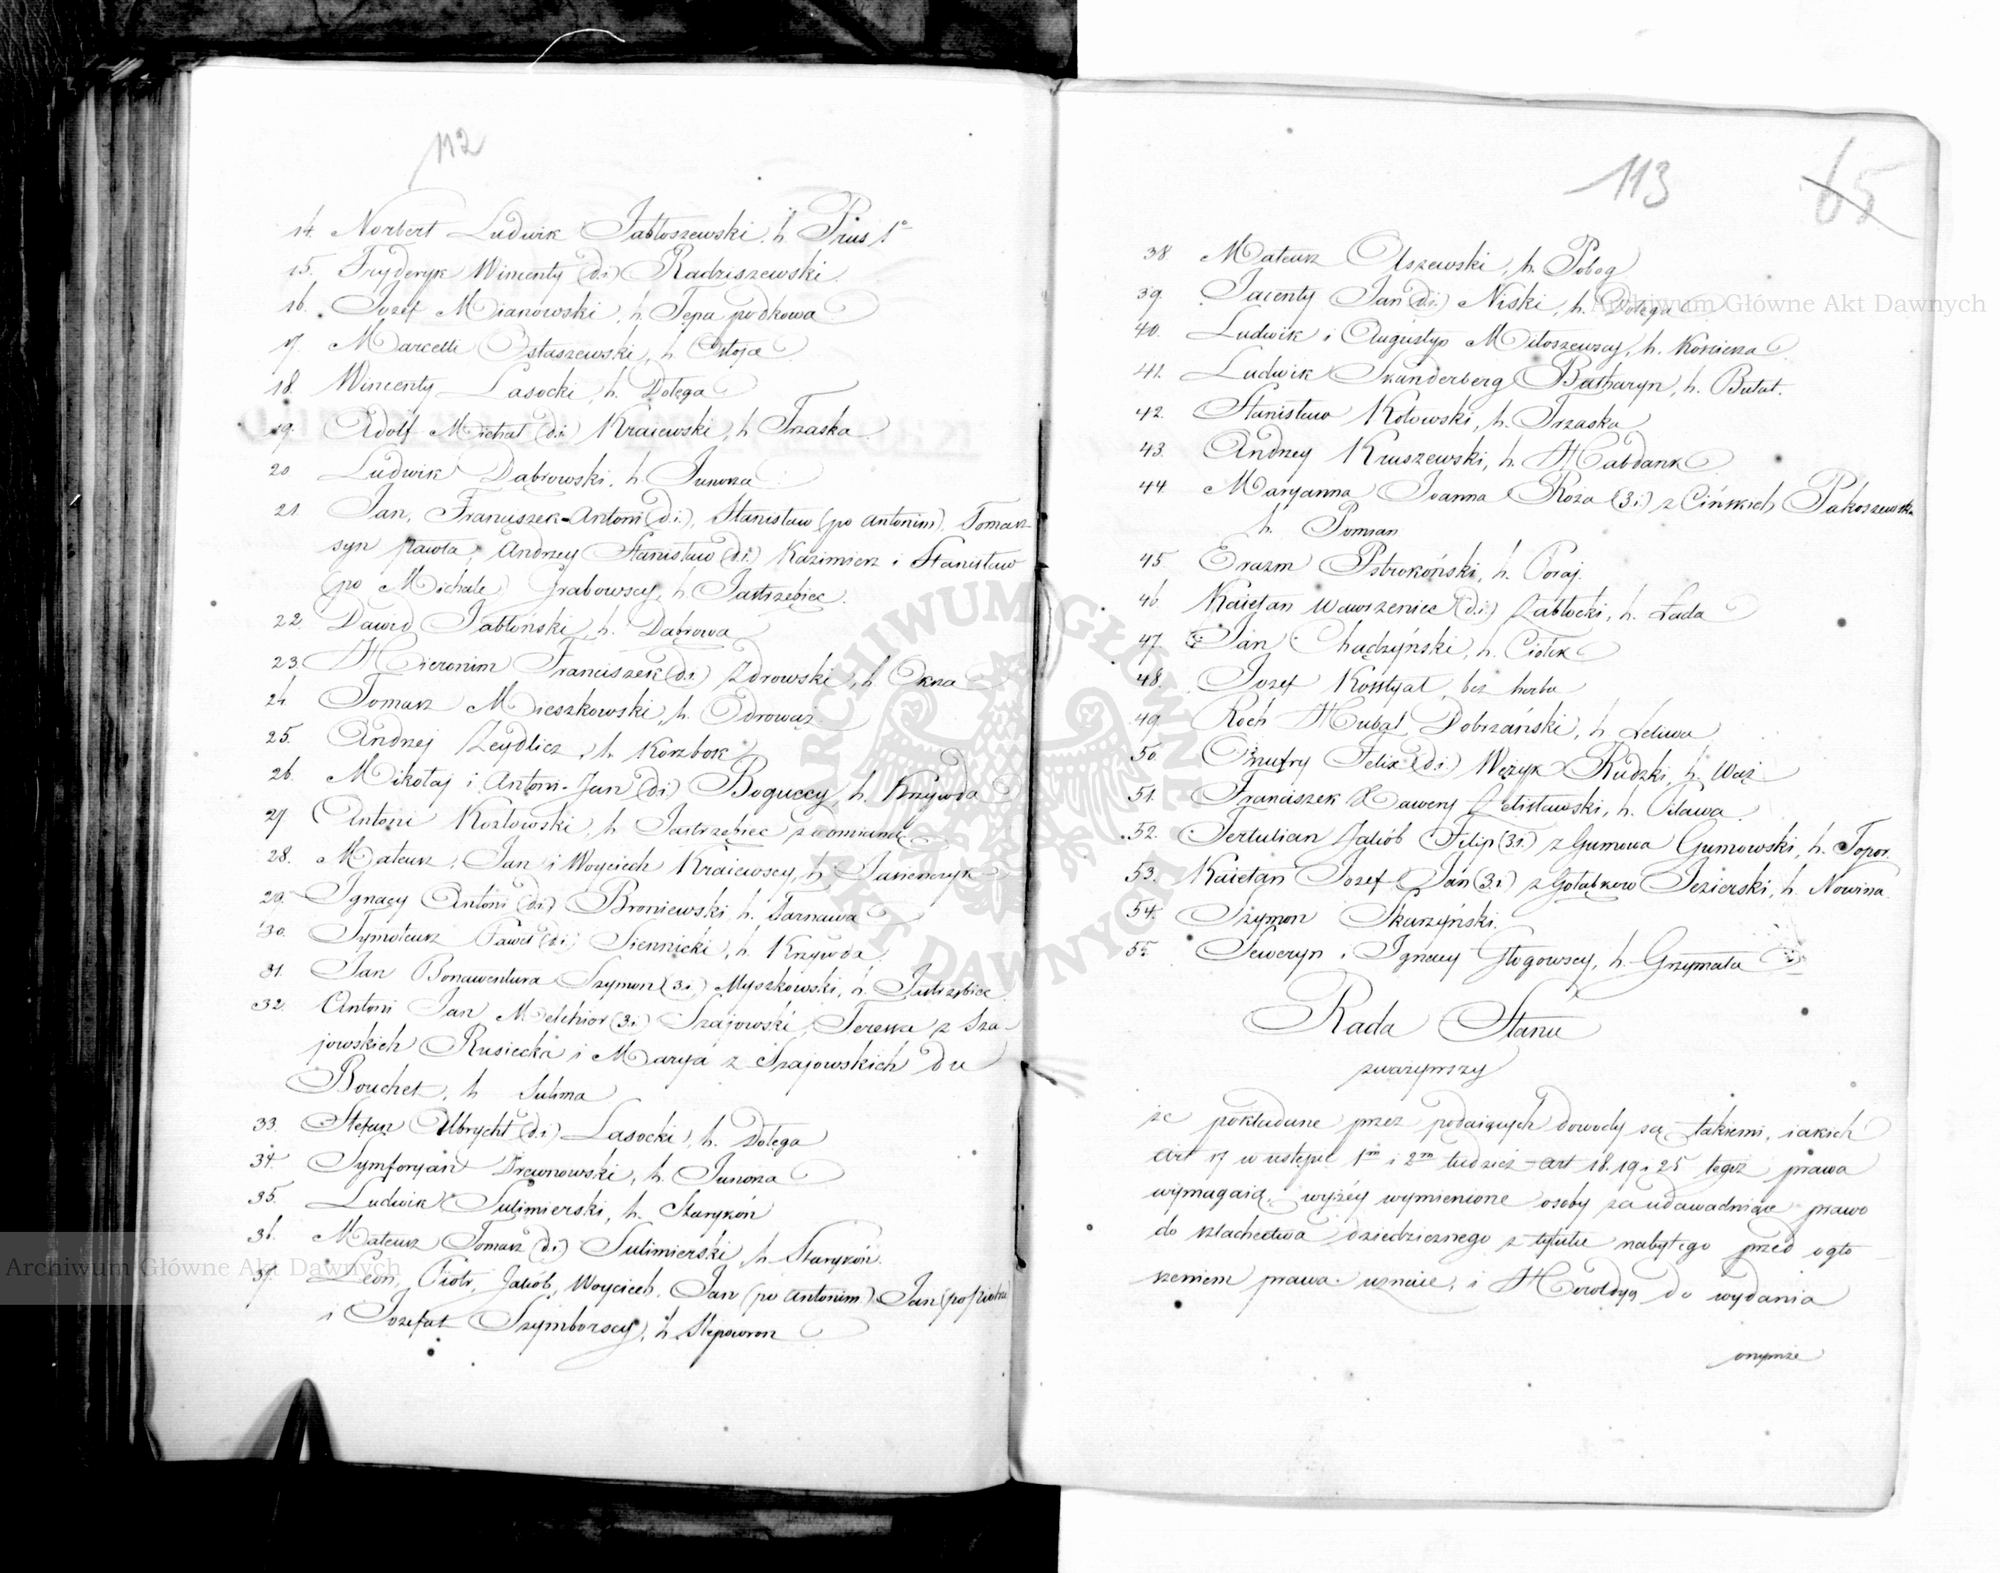 112
14. Norbert Ludwik Jabłoszewski, h. Prus 1º
15. Fryderyk Wincenty (d.i.) Radziszewski.
16. Jozef Mianowski, h. Tępa podkowa
17. Marcelli Ostaszewski, h. Ostoja
18. Wincenty Lasocki, h. Dołęga
19. Adolf Michał (d.i.) Kraiewski, h. Trzaska
20. Ludwik Dąbrowski, h. Junosza
21. Jan, Franciszek-Antoni (d.i.), Stanisław (po Antonim), Tomasz
syn Pawła, Andrzey Stanisław (d.i.) Kazimierz i Stanisław
(po Michale) Grabowscy, h. Jastrzębiec.
22. Dawid Jabłoński, h. Dąbrowa
23. Hieronim Franciszek (d.i.) Zdrowski, h. Oksza
24. Tomasz Mieszkowski, h. Odrowąż
25. Andrzej Zeydlicz, h. Korzbok
26. Mikołaj i Antoni-Jan (d.i.) Boguccy, h. Krzywda
27. Antoni Kozłowski, h. Jastrzębiec z odmianą
28. Mateusz, Jan i Woyciech Kraiewscy, h. Jasieńczyk
29. Ignacy Antoni (d.i.) Broniewski, h. Tarnawa
30. Tymoteusz Paweł (d.i.) Siennicki, h. Krzywda
31. Jan Bonawentura Szymon (3.i.) Myszkowski, h. Jastrzębiec
32. Antoni Jan Melchior (3.i.) Szajowski, Teressa z Sza-
jowskich Rusiecka i Marya z Szajowskich du
Bouchet, h. Sulima
33. Stefan Olbrycht (d.i.) Lasocki, h. Dołęga
34. Symforyan Drewnowski, h. Junosza
35. Ludwik Sulimierski, h. Starykoń
36. Mateusz Tomasz (d.i.) Sulimierski, h. Starykoń.
37. Leon, Piotr, Jakób, Woyciech, Jan (po Antonim) Jan (po Piotrze)
i Jozefat Szymborscy, h. Ślepowron
113
65
38 Mateusz Olszewski, h. Pobog
39. Jacenty Jan (d.i.) Niski, h. Dołęga
40. Ludwik i Augustyn Miłoszewscy, h. Kościesza
41. Ludwik Skanderberg Butharyn, h. Butat.
42. Stanisław Kotowski, h. Trzaska
43. Andrzey Kruszewski, h. Habdank
44. Maryanna Joanna Róża (3.i.) z Cińskich Pakoszewska
h. Pomian
45. Erazm Pstrokoński, h. Poraj.
46. Kaietan Wawrzeniec (d.i.) Zabłocki, h. Łada
47. Jan Chądzyński, h. Ciołek
48. Jozef Kosstyał, bez herbu
49. Roch Hubal Dobrzański, h. Leliwa
50. Onufry Felix (d.i.) Wężyk Rudzki, h. Wąż
51. Franciszek Xawery Zelisławski, h. Pilawa.
52. Tertulian Jakób Filip (3.i.) z Gumowa Gumowski, h. Topor.
53. Kaietan Jozef Jan (3.i.) z Gołąbkow Jezierski, h. Nowina.
54. Szymon Skarzyński.
55. Seweryn i Ignacy Głogowscy, h. Grzymała
Rada Stanu
zważywszy
że pokładane przez podaiących dowody są takiemi, iakich
Art 17 w ustępie 1m i 2m tudzież Art 18.19 i 25 tegoż prawa
wymagaią, wyżéy wymienione osoby za udawadniaiące prawo
do szlachectwa dziedzicznego z tytułu nabytego przed ogło-
szeniem prawa uznaie, i Heroldyą do wydania
onymże
Archiwum Główne Akt Dawnych
Archiwum Główne Akt Dawnych
ARCHIWUM GŁÓWNE AKT DAWNYCH